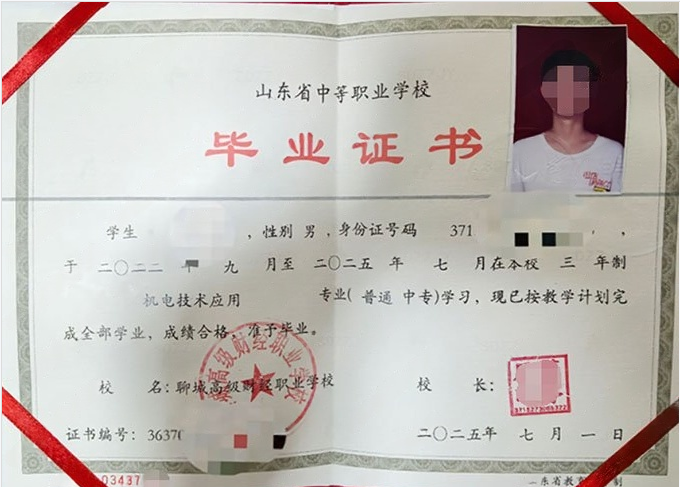 山东省中等职业学校
毕业证书
学生 ，性别 男 ，身份证号码 371 ，
于 二〇二二 年 九 月至 二〇二五 年 七 月在本校 三 年制
机电技术应用 专业( 普通 中专)学习，现已按教学计划完
成全部学业，成绩合格，准予毕业。
校 名：聊城高级财经职业学校 校 长：
高级财经职业学校
3715273005322
证书编号：3637 二〇二五年 七 月 一 日
03437 东省教育 制